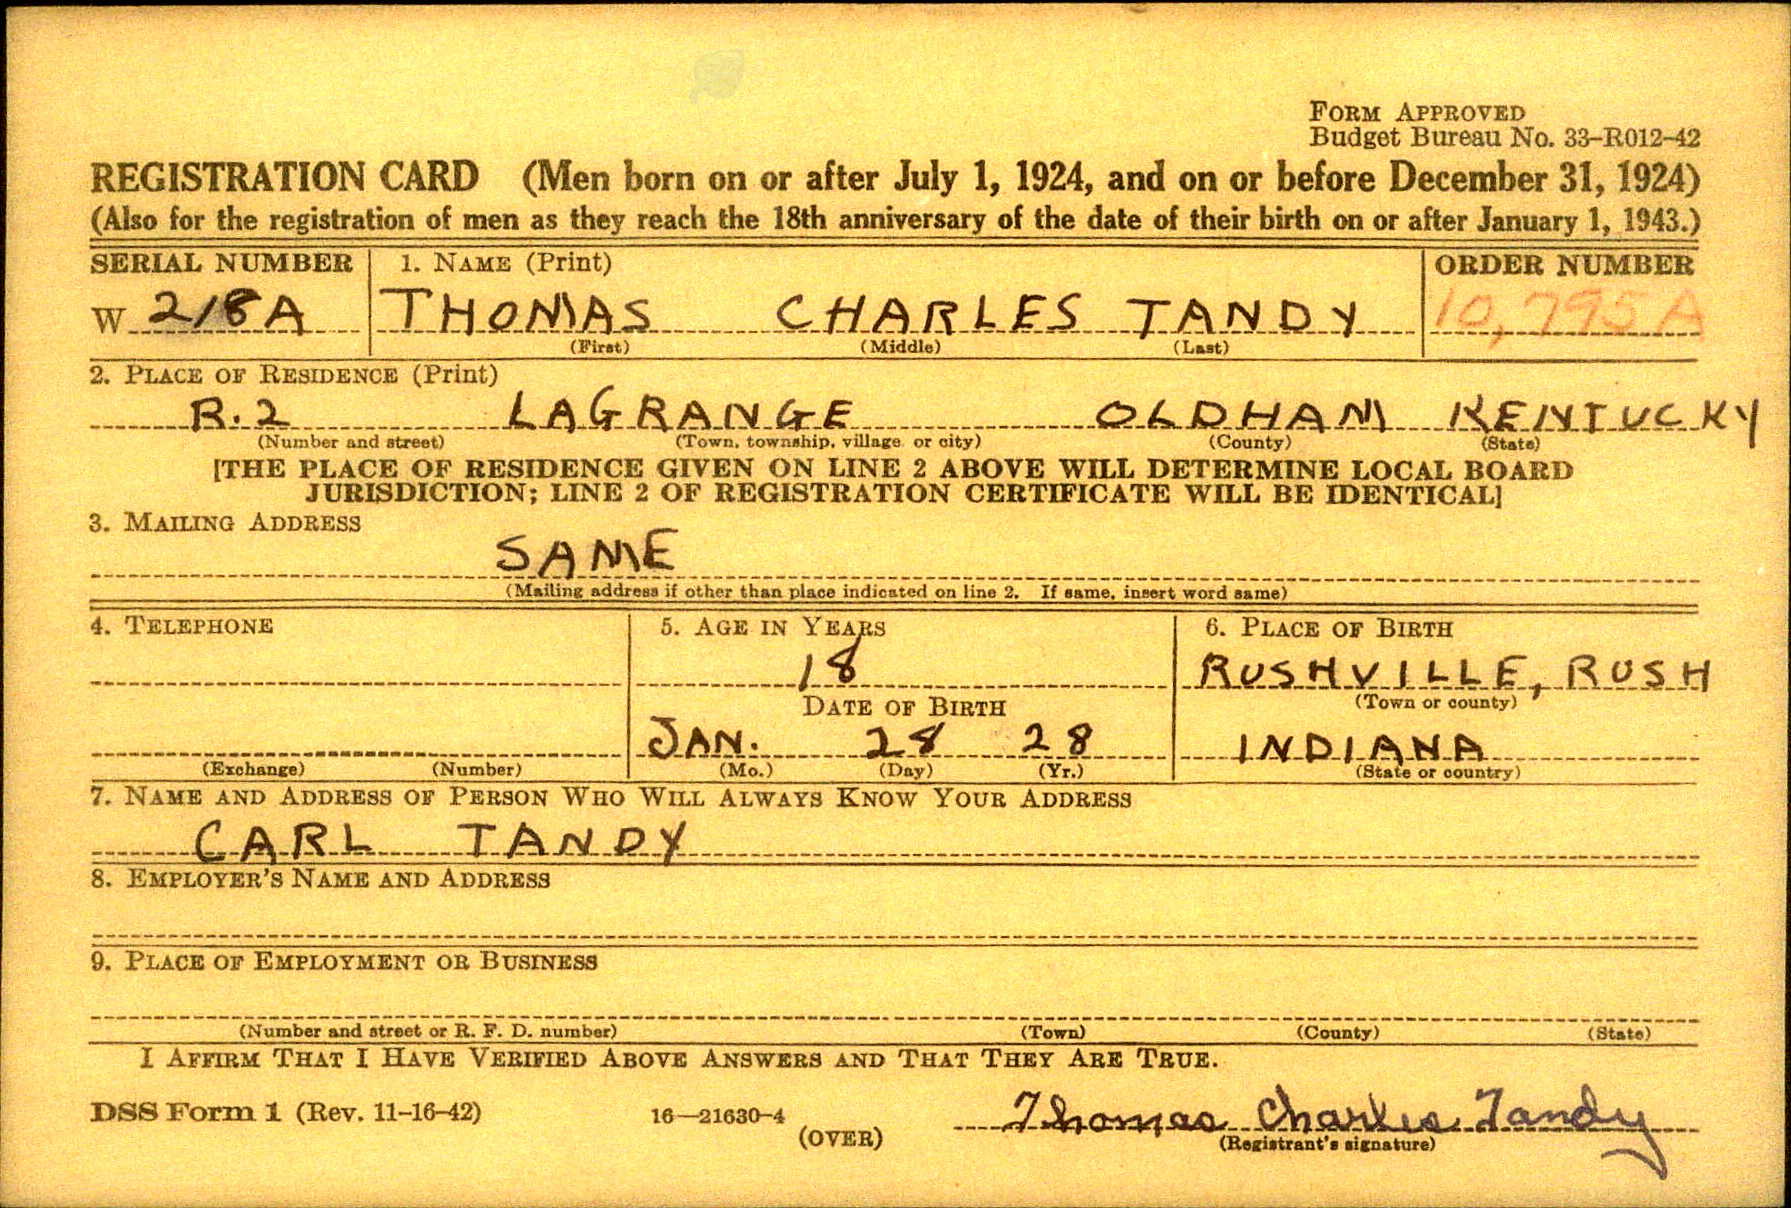 FORM APPROVED
Budget Bureau No. 33-R012-42
REGISTRATION CARD (Men born on or after July 1, 1924, and on or before December 31, 1924)
(Also for the registration of men as they reach the 18th anniversary of the date of their birth on or after January 1, 1943.)
SERIAL NUMBER 1. NAME (Print) ORDER NUMBER
W 218A THOMAS CHARLES TANDY 10,795A
(First) (Middle) (Last)
2. PLACE OF RESIDENCE (Print)
R.2 LAGRANGE OLDHAM KENTUCKY
(Number and street) (Town, township, village or city) (County) (State)
[THE PLACE OF RESIDENCE GIVEN ON LINE 2 ABOVE WILL DETERMINE LOCAL BOARD
JURISDICTION; LINE 2 OF REGISTRATION CERTIFICATE WILL BE IDENTICAL]
3. MAILING ADDRESS
SAME
(Mailing address if other than place indicated on line 2. If same, insert word same)
4. TELEPHONE 5. AGE IN YEARS 6. PLACE OF BIRTH
18 RUSHVILLE, RUSH
DATE OF BIRTH (Town or county)
JAN. 28 28 INDIANA
(Exchange) (Number) (Mo.) (Day) (Yr.) (State or country)
7. NAME AND ADDRESS OF PERSON WHO WILL ALWAYS KNOW YOUR ADDRESS
CARL TANDY
8. EMPLOYER'S NAME AND ADDRESS
9. PLACE OF EMPLOYMENT OR BUSINESS
(Number and street or R. F. D. number) (Town) (County) (State)
I AFFIRM THAT I HAVE VERIFIED ABOVE ANSWERS AND THAT THEY ARE TRUE.
DSS Form 1 (Rev. 11-16-42) 16—21630-4 Thomas Charles Tandy
(OVER) (Registrant's signature)